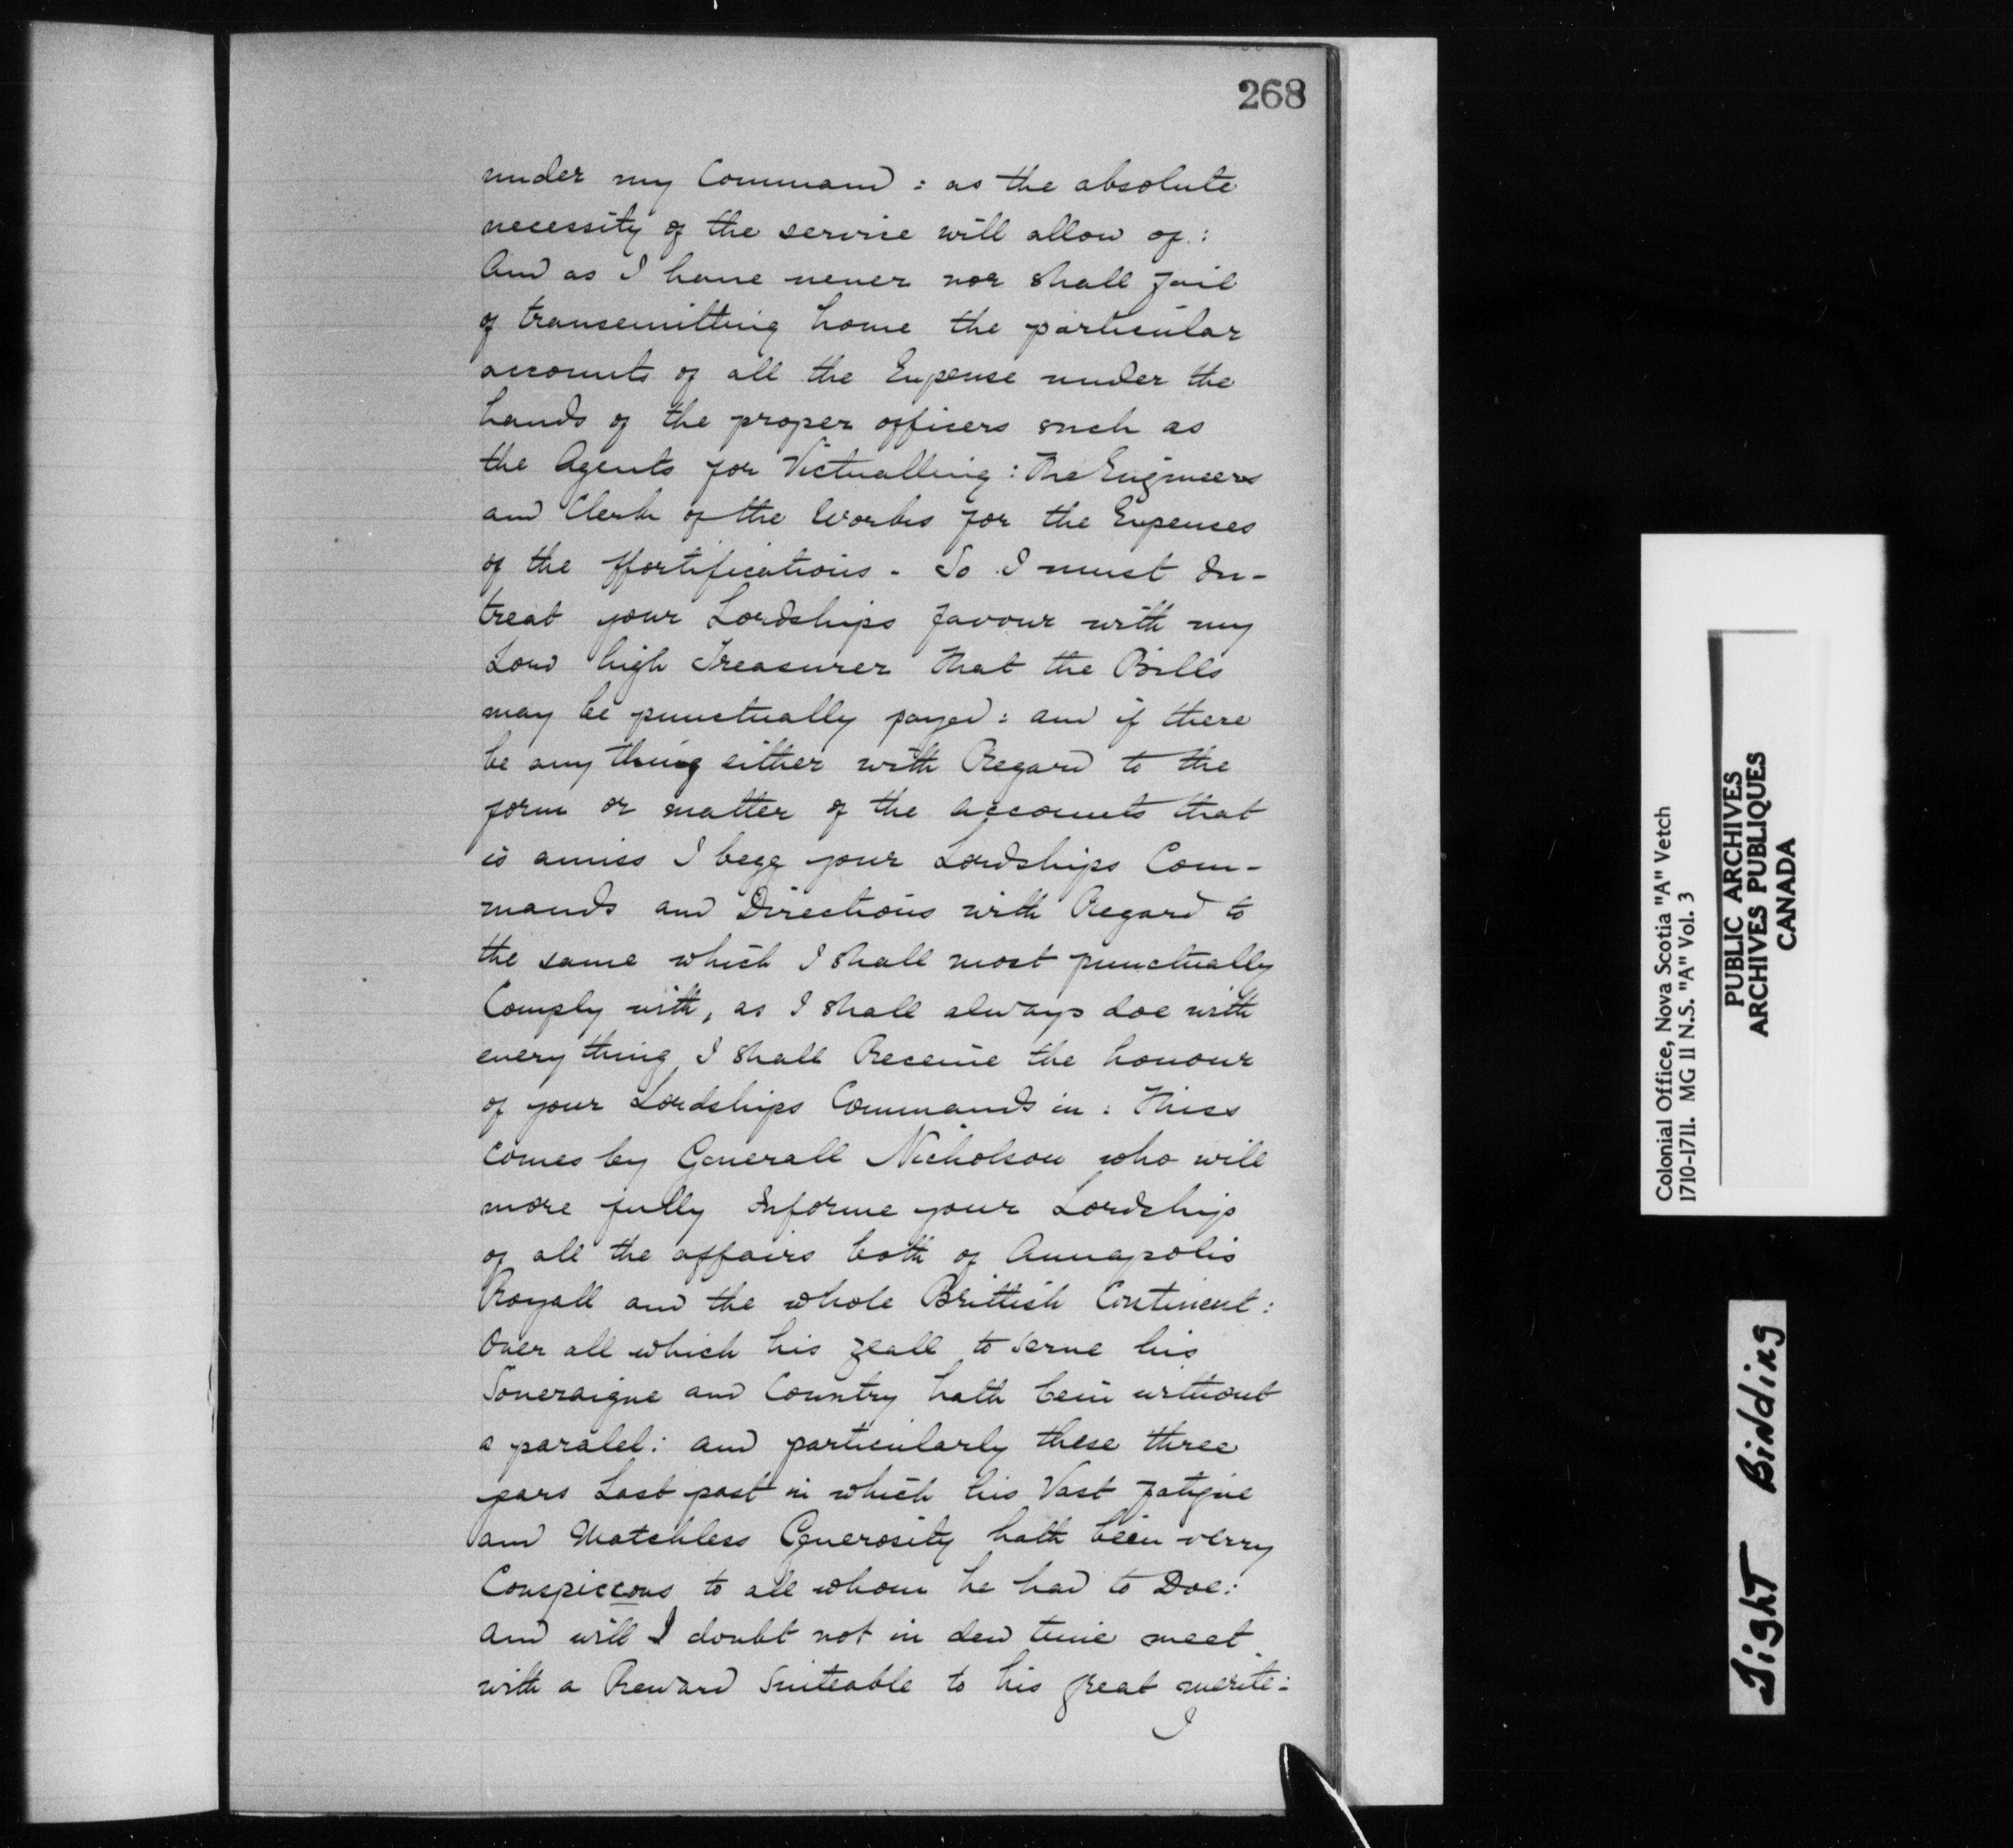 268
under my Command : as the absolute
necessity of the service will allow of :
And as I have never nor shall fail
of transemitting home the particular
accounts of all the Expense under the
hands of the proper officers such as
the Agents for Victualling : The Engineers
and Clerk of the Works for the Expenses
of the ffortifications - So I must In-
treat your Lordships favour with my
Lord high Treasurer that the Bills
may be punctually payed : and if there
be any thing either with Regard to the
form or matter of the accounts that
is amiss I begg your Lordships Com-
mands and Directions with Regard to
the same which I shall most punctually
Comply with, as I shall always doe with
every thing I shall Receive the honour
of your Lordships Commands in : Thiss
comes by Generall Nicholson who will
more fully Informe your Lordships
of all the affairs both of Annapolis
Royall and the whole Brittish Continent :
Over all which his zeall to serve his
Soveraigne and Country hath bein without
a paralel : and particularly these three
years Last past in which his Vast fatigue
and Matchless Generosity hath been verry
Conspiccous to all whom he had to Doe :
and will I doubt not in dew time meet
with a Reward Suiteable to his great merite :
I
Colonial Office, Nova Scotia "A" Vetch
1710-1711. MG 11 N.S. "A" Vol. 3
PUBLIC ARCHIVES
ARCHIVES PUBLIQUES
CANADA
Tight Binding